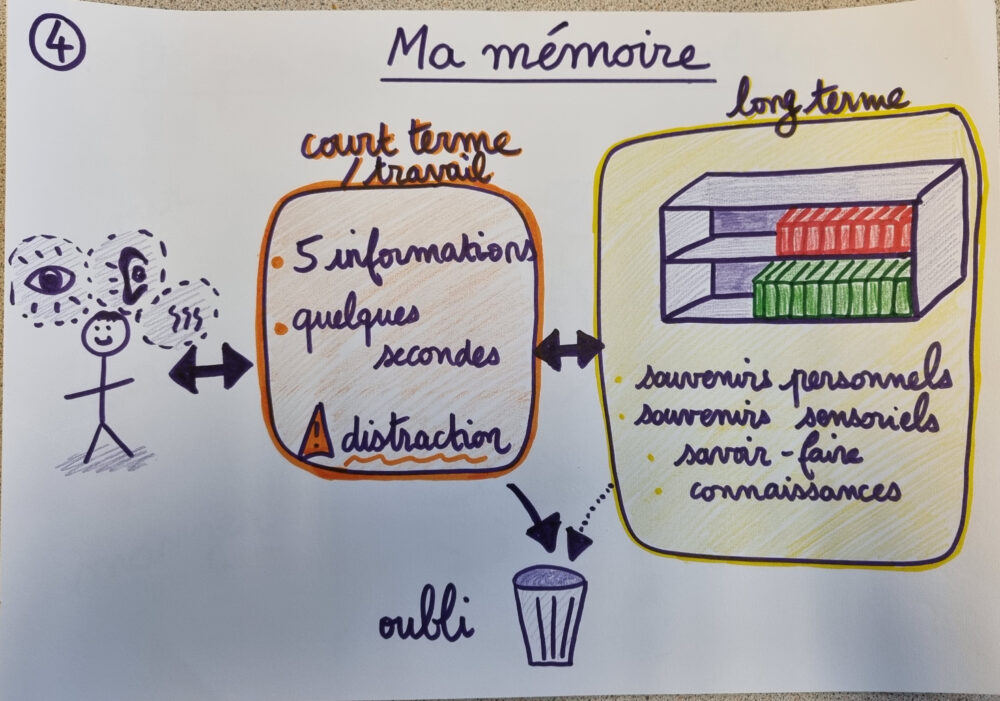 4
Ma mémoire
court terme
/ travail
• 5 informations
• quelques
secondes
! distraction
long terme
• souvenirs personnels
• souvenirs sensoriels
• savoir-faire
• connaissances
oubli